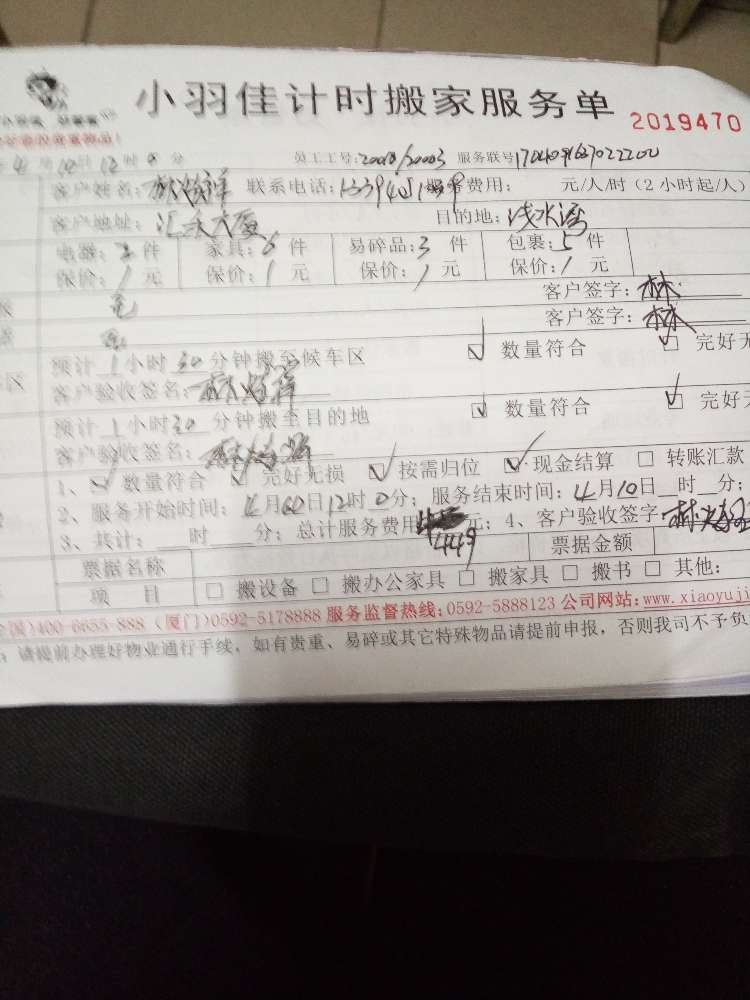 小羽佳计时搬家服务单
2019470
4月10日12时0分 员工工号:20010/20003 服务联号
客户姓名: 联系电话: 费用: 元/人/时(2小时起/人)
客户地址: 汇禾大厦 目的地:浅水湾
电器:2件 家具:6件 易碎品:3件 包裹:5件
保价:1元 保价:1元 保价:1元 保价:1元
无 客户签字:林
客户签字:林
预计1小时30分钟搬至候车区 数量符合 完好无
客户验收签名:
预计1小时30分钟搬至目的地 数量符合 完好无
客户验收签名:
1、数量符合 完好无损 按需归位 现金结算 转账汇款
2、服务开始时间:4月10日12时0分;服务结束时间:4月10日__时__分;
3、共计:__时__分;总计服务费用 449 元;4、客户验收签字
票据名称 票据金额
项目 搬设备 搬办公家具 搬家具 搬书 其他:
国)400-6655-888 (厦门)0592-5178888 服务监督热线:0592-5888123 公司网站:www.xiaoyuji
:请提前办理好物业通行手续,如有贵重、易碎或其它特殊物品请提前申报,否则我司不予负